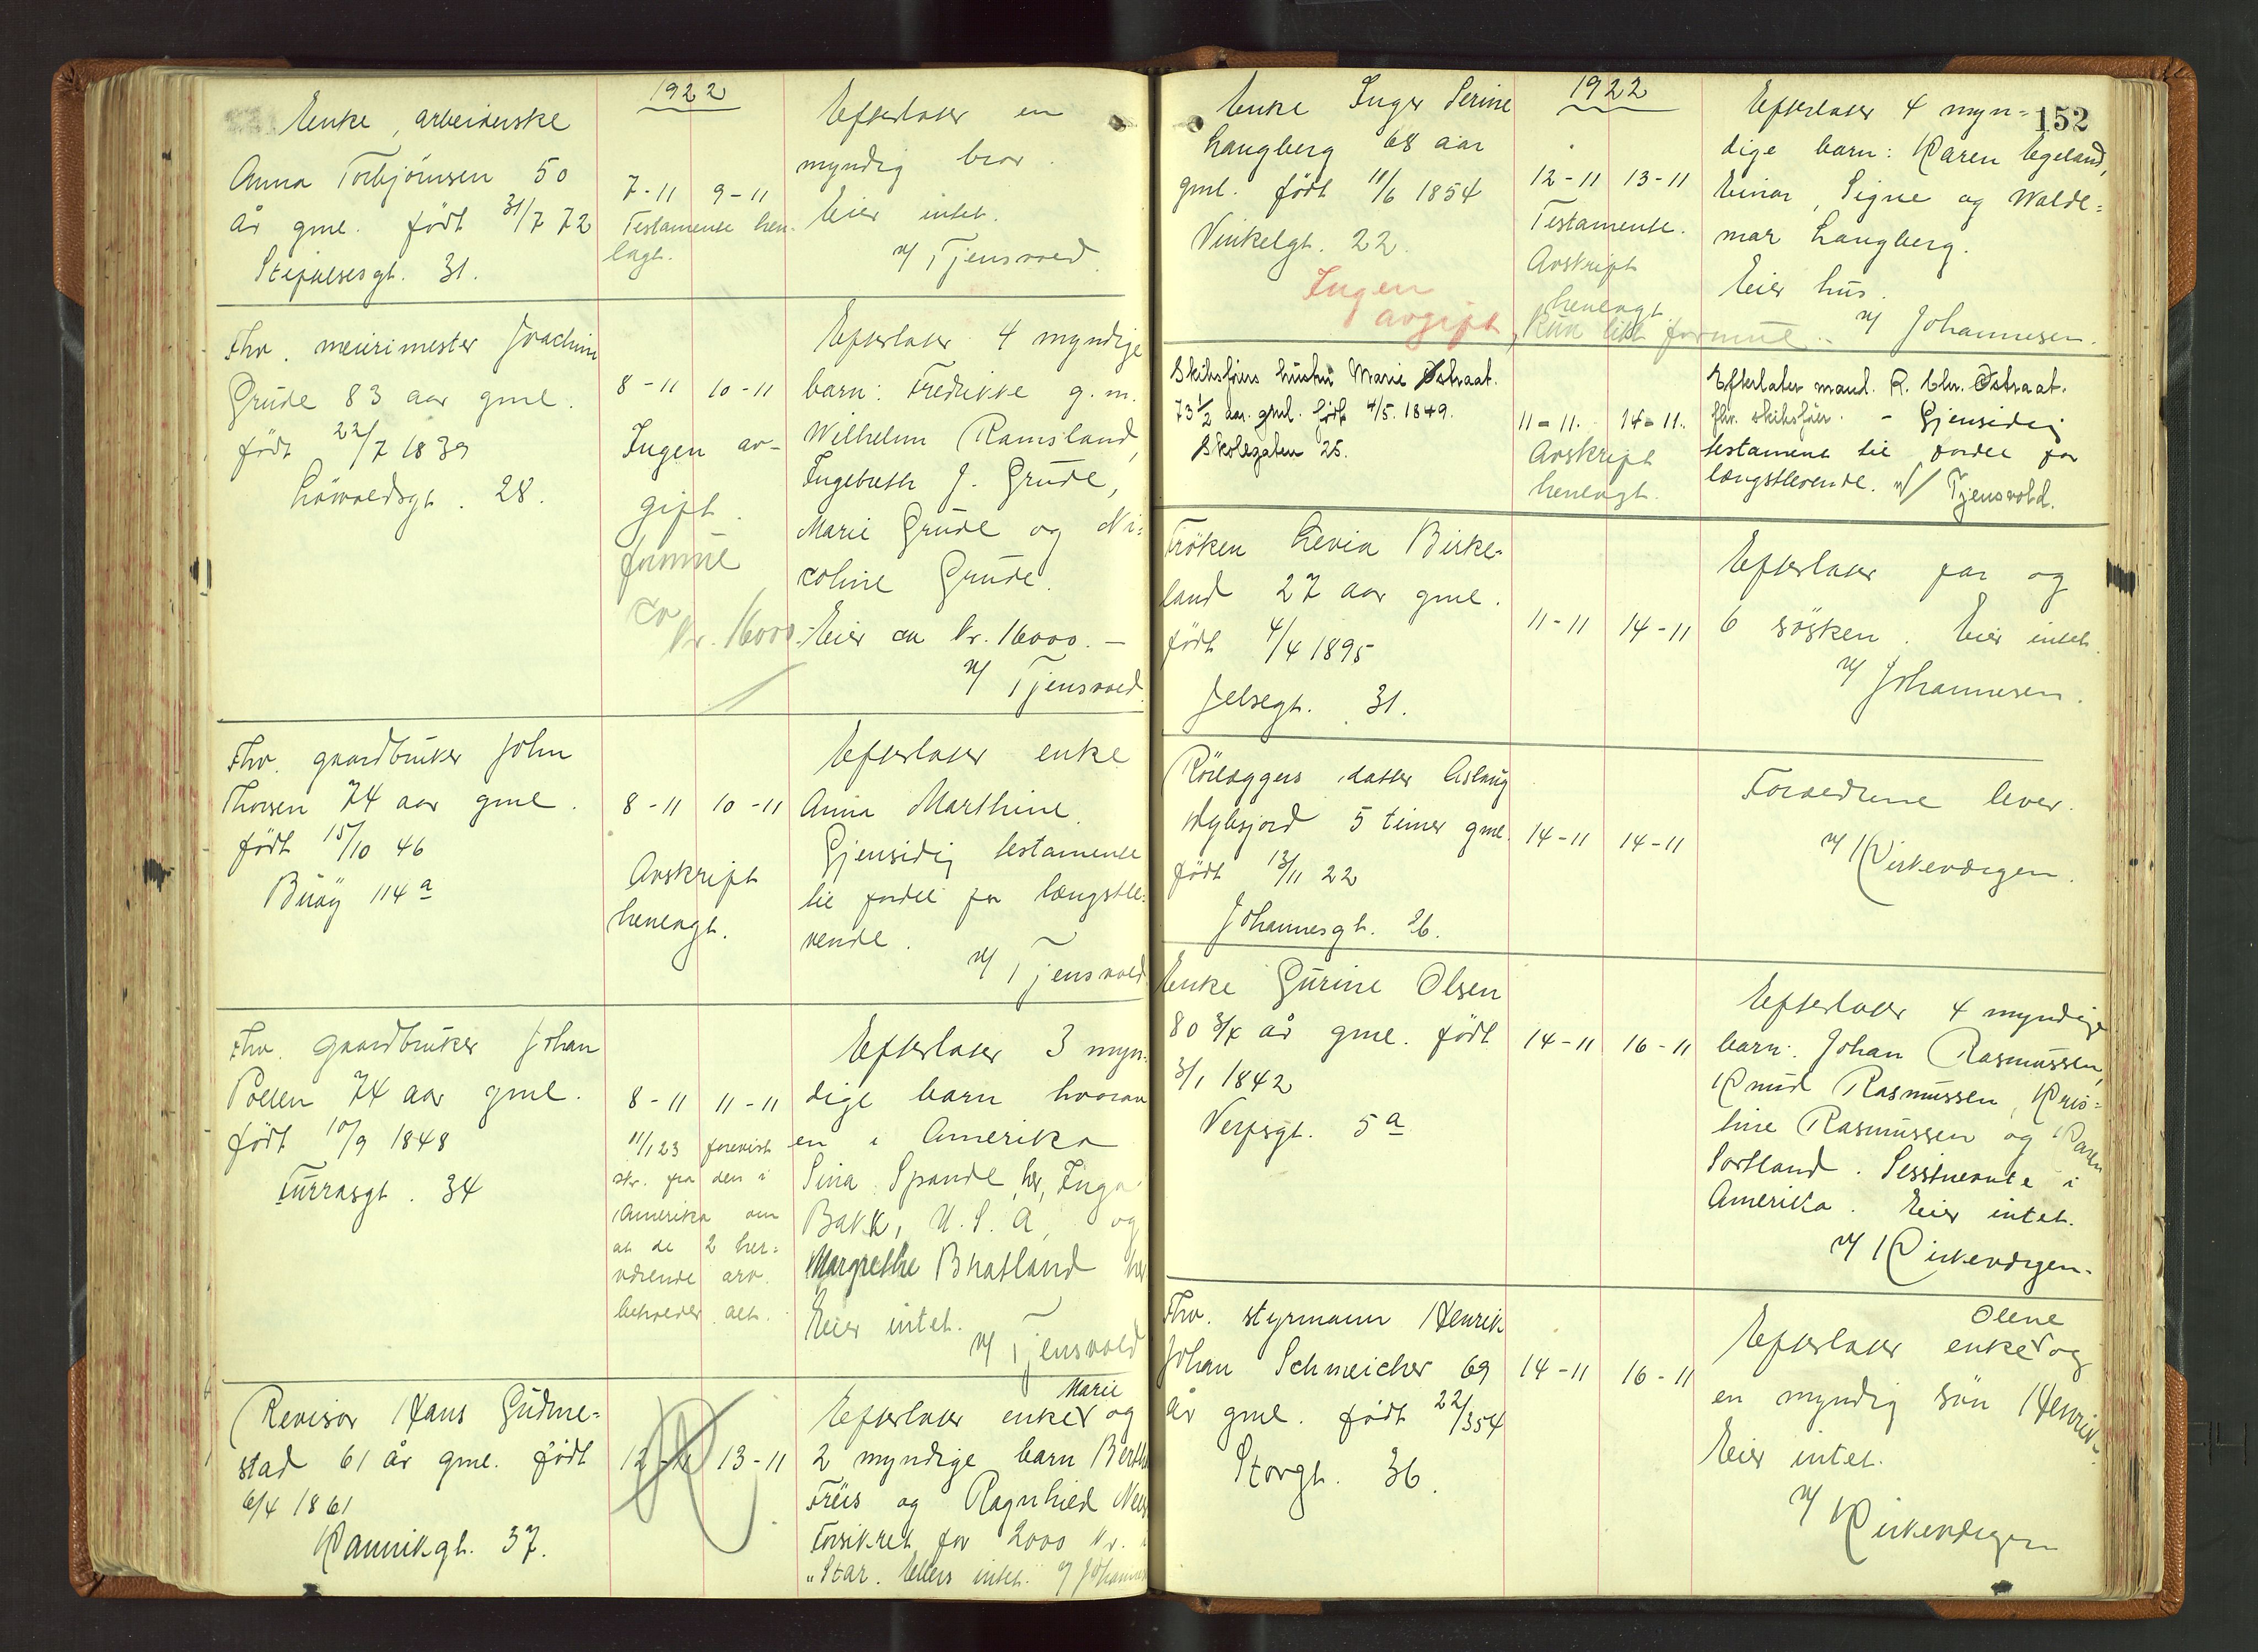 1922
Enke, arbeiderske
Anna Torbjörnsen 50
år gml. født 31/7 72
Stiftelsesgt. 31.
7-11 9-11
Testamente hen-
lagt.
Efterlater en
myndig bror.
Eier intet.
v/ Tjensvold.
Fhv. meierimester Joachim
Grude 83 aar gml.
født 22/7 1839
Lövoldsgt. 28.
8-11 10-11
Ingen av-
gift.
formue
ca
kr. 16000.-
Efterlater 4 myndige
barn: Fredrikke g. m.
Wilhelm Ramsland,
Ingebreth J. Grude,
Marie Grude og Ni-
coline Grude.
Eier ca kr. 16000.-
v/ Tjensvold.
Fhv. gaardbruker John
Thorsen 74 aar gml.
født 15/10 46
Buøy 114 a
8-11 10-11
Avskrift
henlagt.
Efterlater enke
Anna Marthine.
Gjensidig testamente
til fordel for længstle-
vende.
v/ Tjensvold
Fhv. gaardbruker Johan
Pollen 74 aar gml.
født 10/9 1848
Furrasgt. 34
8-11 11-11
11/1 23 forevist
skr. fra den i
Amerika om
at de 2 her-
værende arv.
beholder alt.
Efterlater 3 myn-
dige barn hvorav
en i Amerika
Sina Spande, her, Inga
Bakk, U.S.A, og
Margrethe Bratland her
Eier intet.
v/ Tjensvold
Revisor Hans Gudme-
stad 61 år gml. født
6/4 1861
Kannikgt. 37.
12-11 13-11
Marie
Efterlater enke og
2 myndige barn Bertha
Friis og Ragnhild
Forsikret for 2000 kr. i
"Star. Ellers intet. v/ Johannesen
152
1922
Enke Inger Serine
Langberg 68 aar
gml. født 11/6 1854
Vinkelgt. 22.
Ingen
avgift, kun litt formue.
12-11 13-11
Testamente.
Avskrift
henlagt.
Efterlater 4 myn-
dige barn: Karen Egeland,
Einar, Signe og Walde-
mar Langberg.
Eier hus.
v/ Johannesen.
Skibsførers hustru Marie Østraat.
73 1/2 aar. gml. født 4/5. 1849.
Skolegaten 25.
11-11. 14-11.
Avskrift
henlagt.
Efterlater mand. R. Chr. Østraat.
fhv. skibsfører. - Gjensidig
testament til fordel for
længstlevende. v/ Tjensvold.
Frøken Levia Birke-
land 27 aar gml.
født 4/4 1895
Jelsegt. 31.
11-11 14-11
Efterlater far og
6 søsken. Eier intet.
v/ Johannesen.
Rörlæggers datter Aslaug
5 timer gml.
født 13/11 22
Johannesgt. 26.
14-11 14-11
Forældrene lever.
v/ Kirkevergen.
Enke Gurine Olsen
80 3/4 år gml. født
3/1 1842
Verftsgt. 5 a
14-11 16-11
Efterlater 4 myndige
barn: Johan Rasmussen,
Knud Rasmussen, Kris-
tine Rasmussen og Karen
Sortland. Sistnevnte i
Amerika. Eier intet.
v/ Kirkevergen.
Fhv. styrmann Henrik
Johan Schmeicher 69
år gml. født 22/3 54
Storgt. 36.
14-11 16-11
Olene
Efterlater enke og
en myndig sön Henrik.
Eier intet.
v/ Kirkevergen